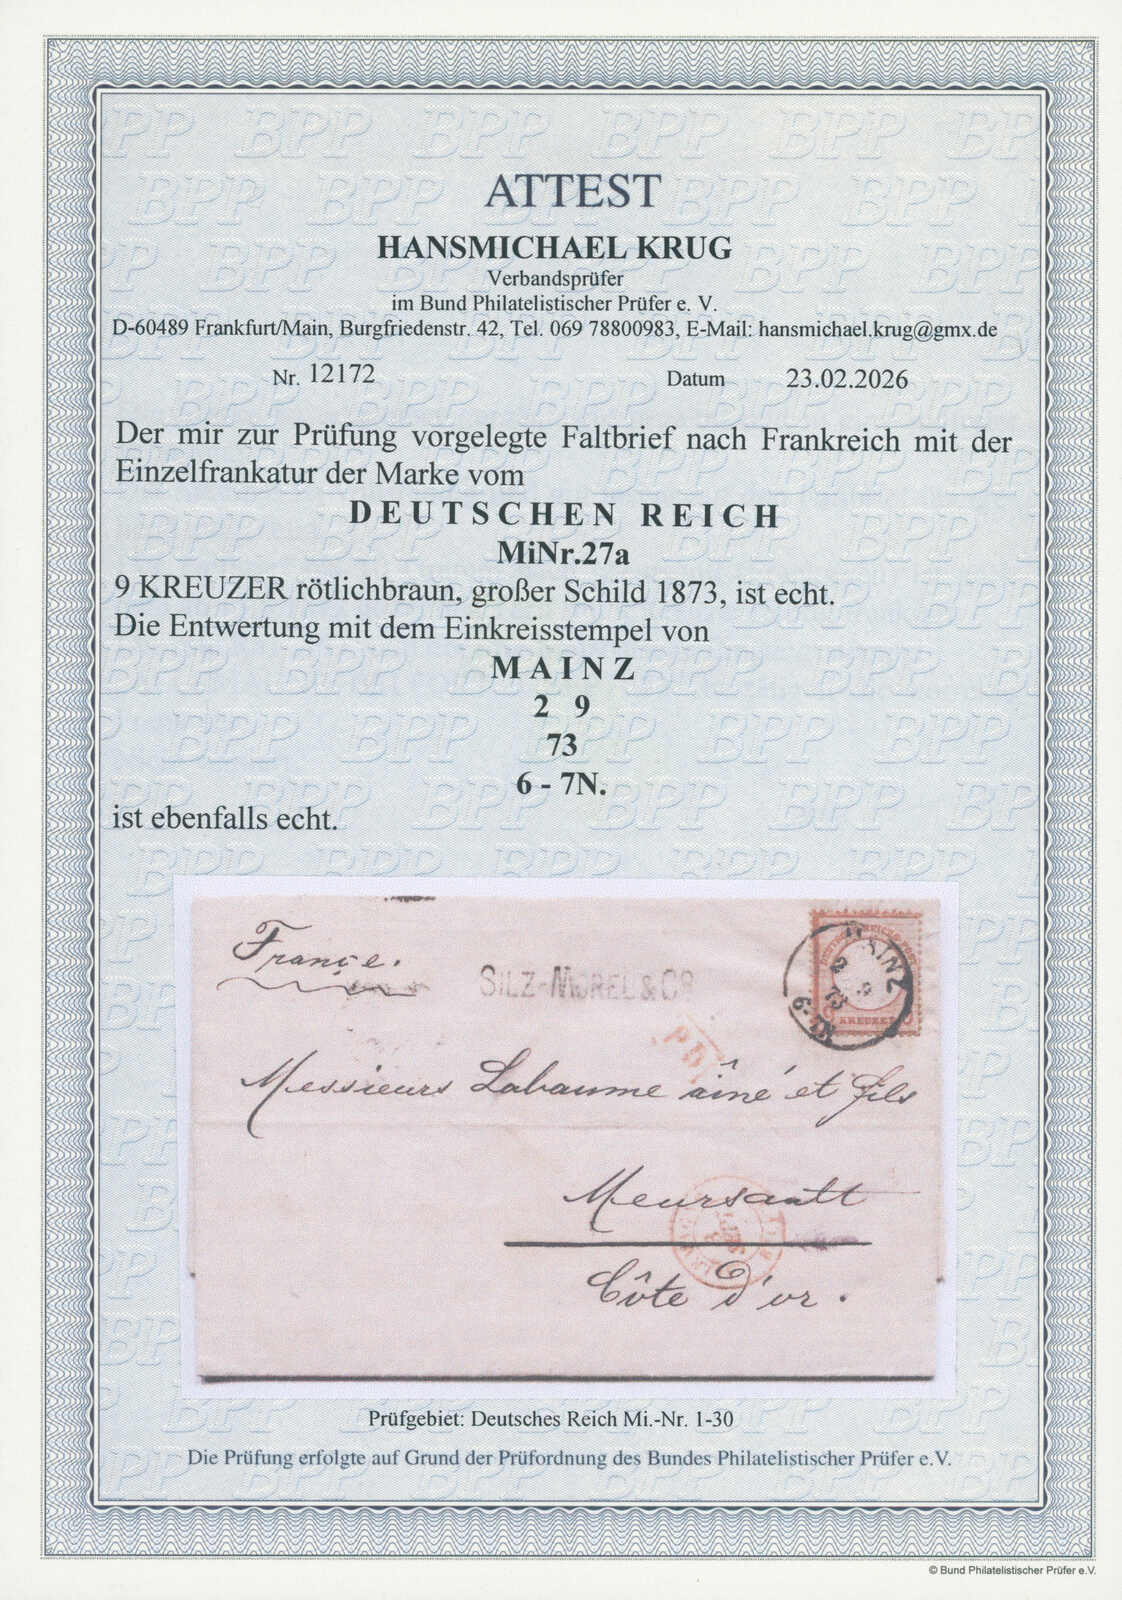 ATTEST
HANSMICHAEL KRUG
Verbandsprüfer
im Bund Philatelistischer Prüfer e. V.
D-60489 Frankfurt/Main, Burgfriedenstr. 42, Tel. 069 78800983, E-Mail: hansmichael.krug@gmx.de
Nr. 12172 Datum 23.02.2026
Der mir zur Prüfung vorgelegte Faltbrief nach Frankreich mit der
Einzelfrankatur der Marke vom
DEUTSCHEN REICH
MiNr.27a
9 KREUZER rötlichbraun, großer Schild 1873, ist echt.
Die Entwertung mit dem Einkreisstempel von
MAINZ
2 9
73
6 - 7N.
ist ebenfalls echt.
France.
SILZ-MOREL & Co
MAINZ
2 9
73
6-7N
KREUZER
PD
Messieurs Labaume aîné et fils
Meursault
Côte d'or.
Prüfgebiet: Deutsches Reich Mi.-Nr. 1-30
Die Prüfung erfolgte auf Grund der Prüfordnung des Bundes Philatelistischer Prüfer e.V.
© Bund Philatelistischer Prüfer e.V.